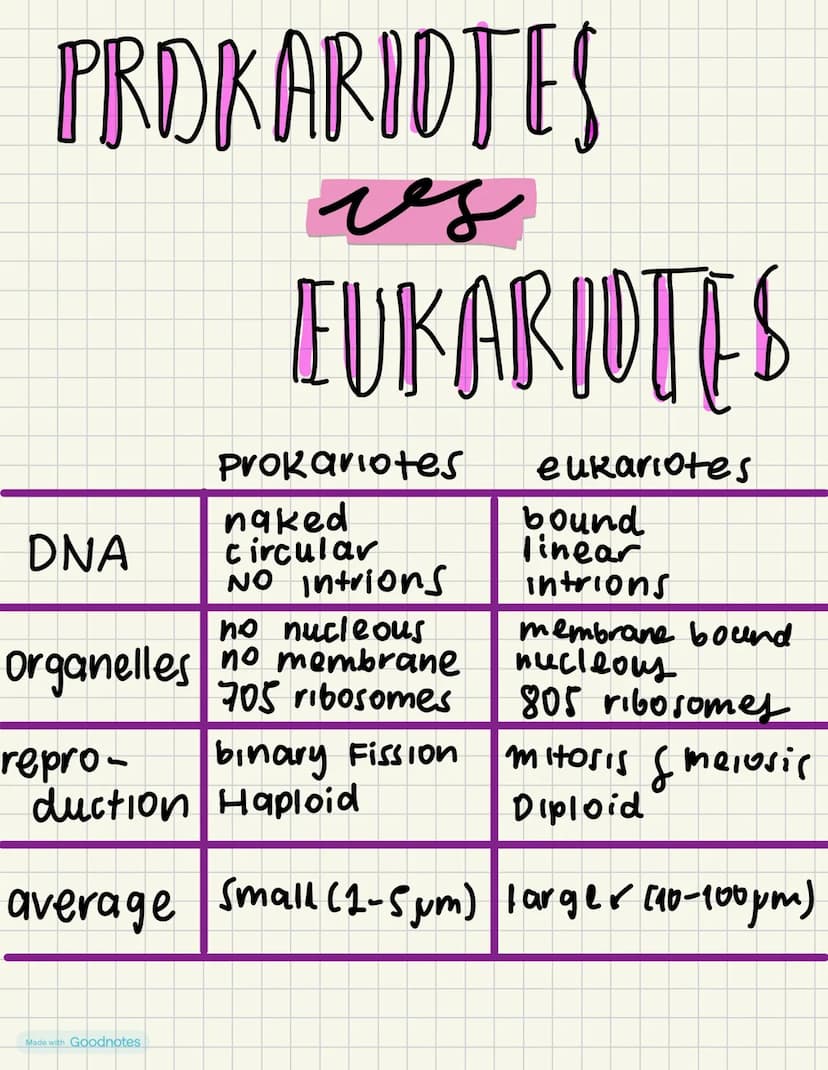 PROKARIOTES
vs
EUKARIOTES
prokariotes eukariotes
DNA
naked
circular
NO intrions
bound
linear
intrions
organelles
no nucleous
no membrane
70S ribosomes
membrane bound
nucleous
80S ribosomes
repro-
duction
binary Fission
Haploid
mitosis & meiosis
Diploid
average
small (1-5 μm)
larger (10-100 μm)
Made with Goodnotes